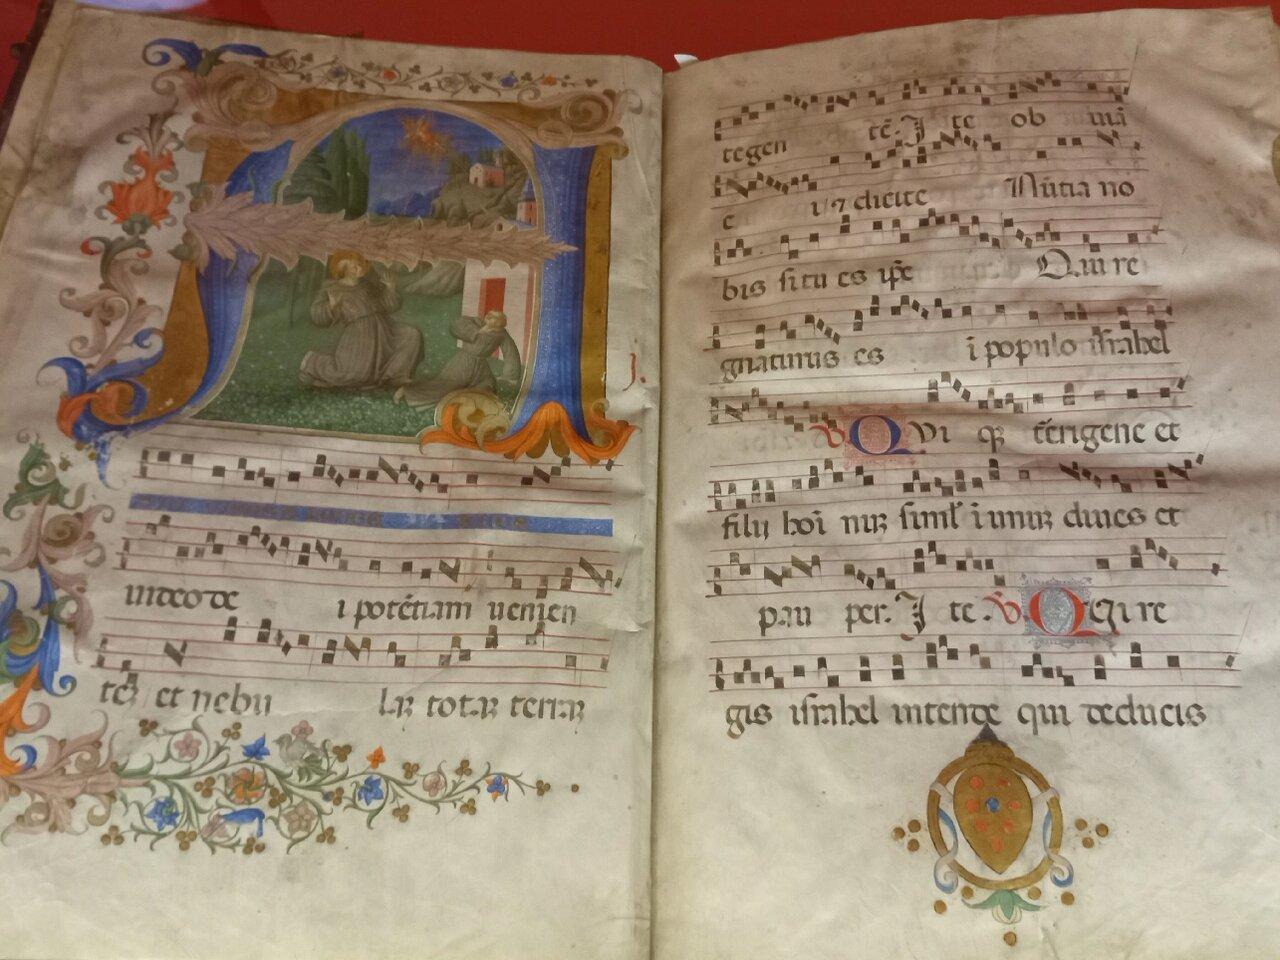 A
video de i potētiam venien
tē et nebu lā totā terrā
tegen tē. J te ob viā
e i ⁊ dicite Nūtia no
bis si tu es ip̄e Qui re
gnaturus es ī populo israhel
V Qvi q̄ tērigene et
filij hoī nū siml̄ ī unū dives et
pau per. J te. V Qegi re
gis israhel intende qui deducis